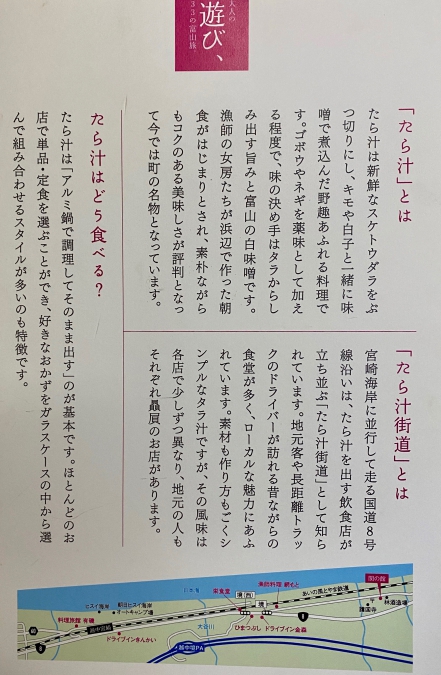 大人の
遊び、
33の富山旅
「たら汁」とは
たら汁は新鮮なスケトウダラをぶ
つ切りにし、キモや白子と一緒に味
噌で煮込んだ野趣あふれる料理で
す。ゴボウやネギを薬味として加え
る程度で、味の決め手はタラからし
み出す旨みと富山の白味噌です。
漁師の女房たちが浜辺で作った朝
食がはじまりとされ、素朴ながら
もコクのある美味しさが評判となっ
て今では町の名物となっています。
「たら汁街道」とは
宮崎海岸に並行して走る国道8号
線沿いは、たら汁を出す飲食店が
立ち並ぶ「たら汁街道」として知ら
れています。地元客や長距離トラッ
クのドライバーが訪れる昔ながらの
食堂が多く、ローカルな魅力にあふ
れています。素材も作り方もごくシ
ンプルなタラ汁ですが、その風味は
各店で少しずつ異なり、地元の人も
それぞれ贔屓のお店があります。
たら汁はどう食べる?
たら汁は「アルミ鍋で調理してそのまま出す」のが基本です。ほとんどのお
店で単品・定食を選ぶことができ、好きなおかずをガラスケースの中から選
んで組み合わせるスタイルが多いのも特徴です。
日本海
栄食堂
漁師料理 網もと
境(西)
境
あいの風とやま鉄道
関の館
護国寺
林酒造場
ヒスイ海岸
朝日ヒスイ海岸
オートキャンプ場
料理旅館 有磯
越中宮崎
ドライブインきんかい
大谷川
ひまつぶし
ドライブイン金森
越中境PA
60
8
8